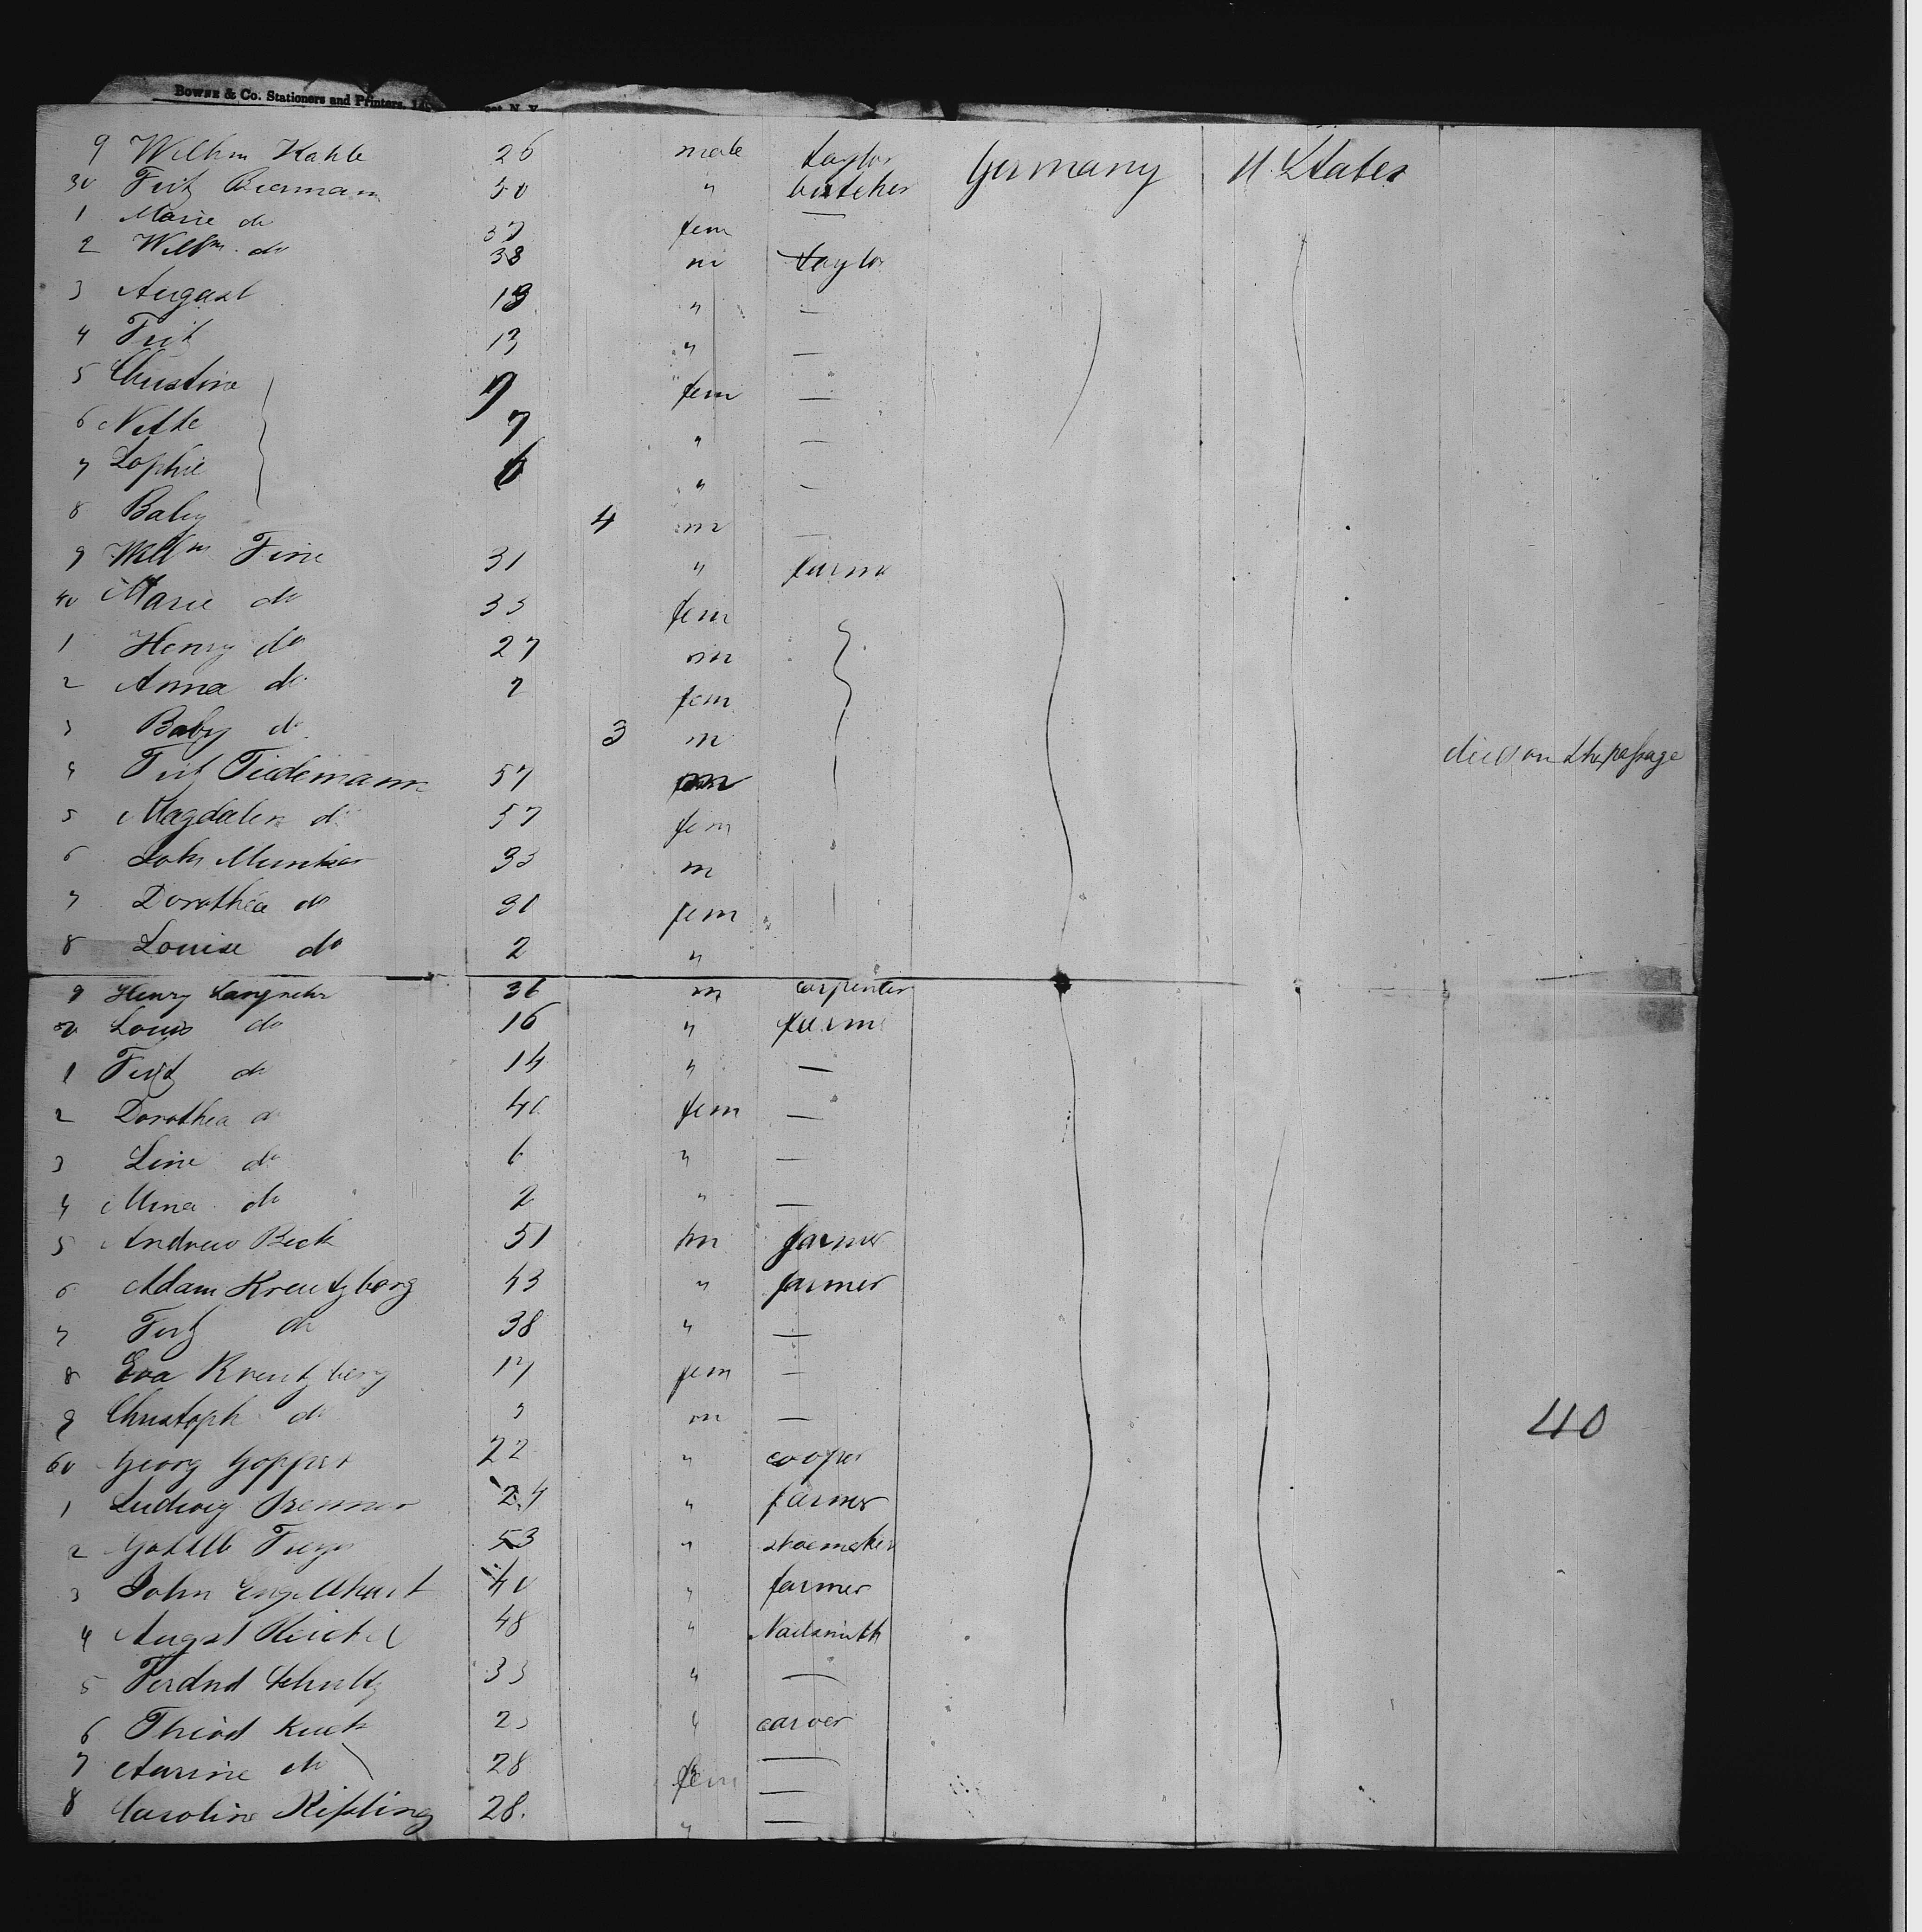 Bowne & Co. Stationers and Printers, N. Y.
9 Wilhm Kahle 26 male taylor Germany U. States
30 Fritz Biermann 50 " butcher
1 Marie do 37 fem —
2 Willm do 38 m taylor
3 August 19 " —
4 Fritz 13 " —
5 Christine 9 fem —
6 Nette 7 " —
7 Sophie 6 " —
8 Baby 4 m —
9 Willm Fine 31 " farme
40 Marie do 33 fem
1 Henry do 27 m
2 Anna do 2 fem
3 Baby do 3 m died on the passage
4 Fritz Tiedemann 57 m
5 Magdalen do 57 fem
6 John Munker 33 m
7 Dorothea do 31 fem
8 Louise do 2 "
9 Henry Langrehr 36 m carpenter
50 Louis do 16 " farme
1 Fritz do 14 " —
2 Dorothea do 40 fem —
3 Line do 6 " —
4 Mina do 2 " —
5 Andrew Beck 51 m farmer
6 Adam Kreutzberg 43 " farmer
7 Fritz do 38 " —
8 Eva Kreutzberg 17 fem —
9 Christoph do 9 m — 40
60 Georg Goppert 22 " cooper
1 Ludwig Brenner 24 " farmer
2 Gottlb 53 " shoemaker
3 John Engelhart 40 " farmer
4 August Reichel 48 " Nailsmith
5 Ferdnd Schultz 33 " —
6 Theod Kuck " carver
7 do 28 fem —
8 Caroline Kipling 28. " —